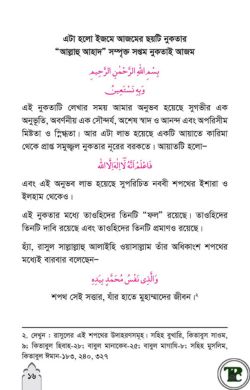 এটা হলো ইজমে আজমের ছয়টি নুকতার
“আল্লাহু আহাদ” সম্পৃক্ত সপ্তম নুকতাই আজম
بِسْمِ اللهِ الرَّحْمٰنِ الرَّحِيمِ
وَبِهِ نَسْتَعِينُ
এই নুকতাটি লেখার সময় আমার অনুভব হয়েছে সুগভীর এক
অনুভূতি, অবর্ণনীয় এক সৌন্দর্য, অশেষ স্বাদ ও আনন্দ এবং অপরিসীম
মিষ্টতা ও স্নিগ্ধতা। আর এটা লাভ হয়েছে একটি আয়াতে কারিমা
থেকে প্রাপ্ত সমুজ্জ্বল নুকতার নূরের বরকতে। আয়াতটি হলো–
فَاعْلَمْ أَنَّهُ لَا إِلٰهَ إِلَّا اللهُ
এবং এই অনুভব লাভ হয়েছে সুপরিচিত নববী শপথের ইশারা ও
ইলহাম থেকেও।
এই নুকতার মধ্যে তাওহিদের তিনটি “ফল” রয়েছে। তাওহিদের
তিনটি দাবি রয়েছে এবং তাওহিদের তিনটি প্রমাণও রয়েছে।
হ্যাঁ, রাসুল সাল্লাল্লাহু আলাইহি ওয়াসাল্লাম তাঁর অধিকাংশ শপথের
মধ্যেই বারবার বলেছেন–
وَالَّذِي نَفْسُ مُحَمَّدٍ بِيَدِهِ
শপথ সেই সত্তার, যাঁর হাতে মুহাম্মাদের জীবন।২
২. দেখুন : রাসুলের এই শপথের উদাহরণসমূহ। সহিহ বুখারি, কিতাবুস সাওম,
৯; কিতাবুল হিবাহ-২৮; বাবুল মানাকেব-২৫; বাবুল মাগাযি-৮; সহিহ মুসলিম,
কিতাবুল ঈমান-১৮৩, ২৪০, ৩২৭
১৬